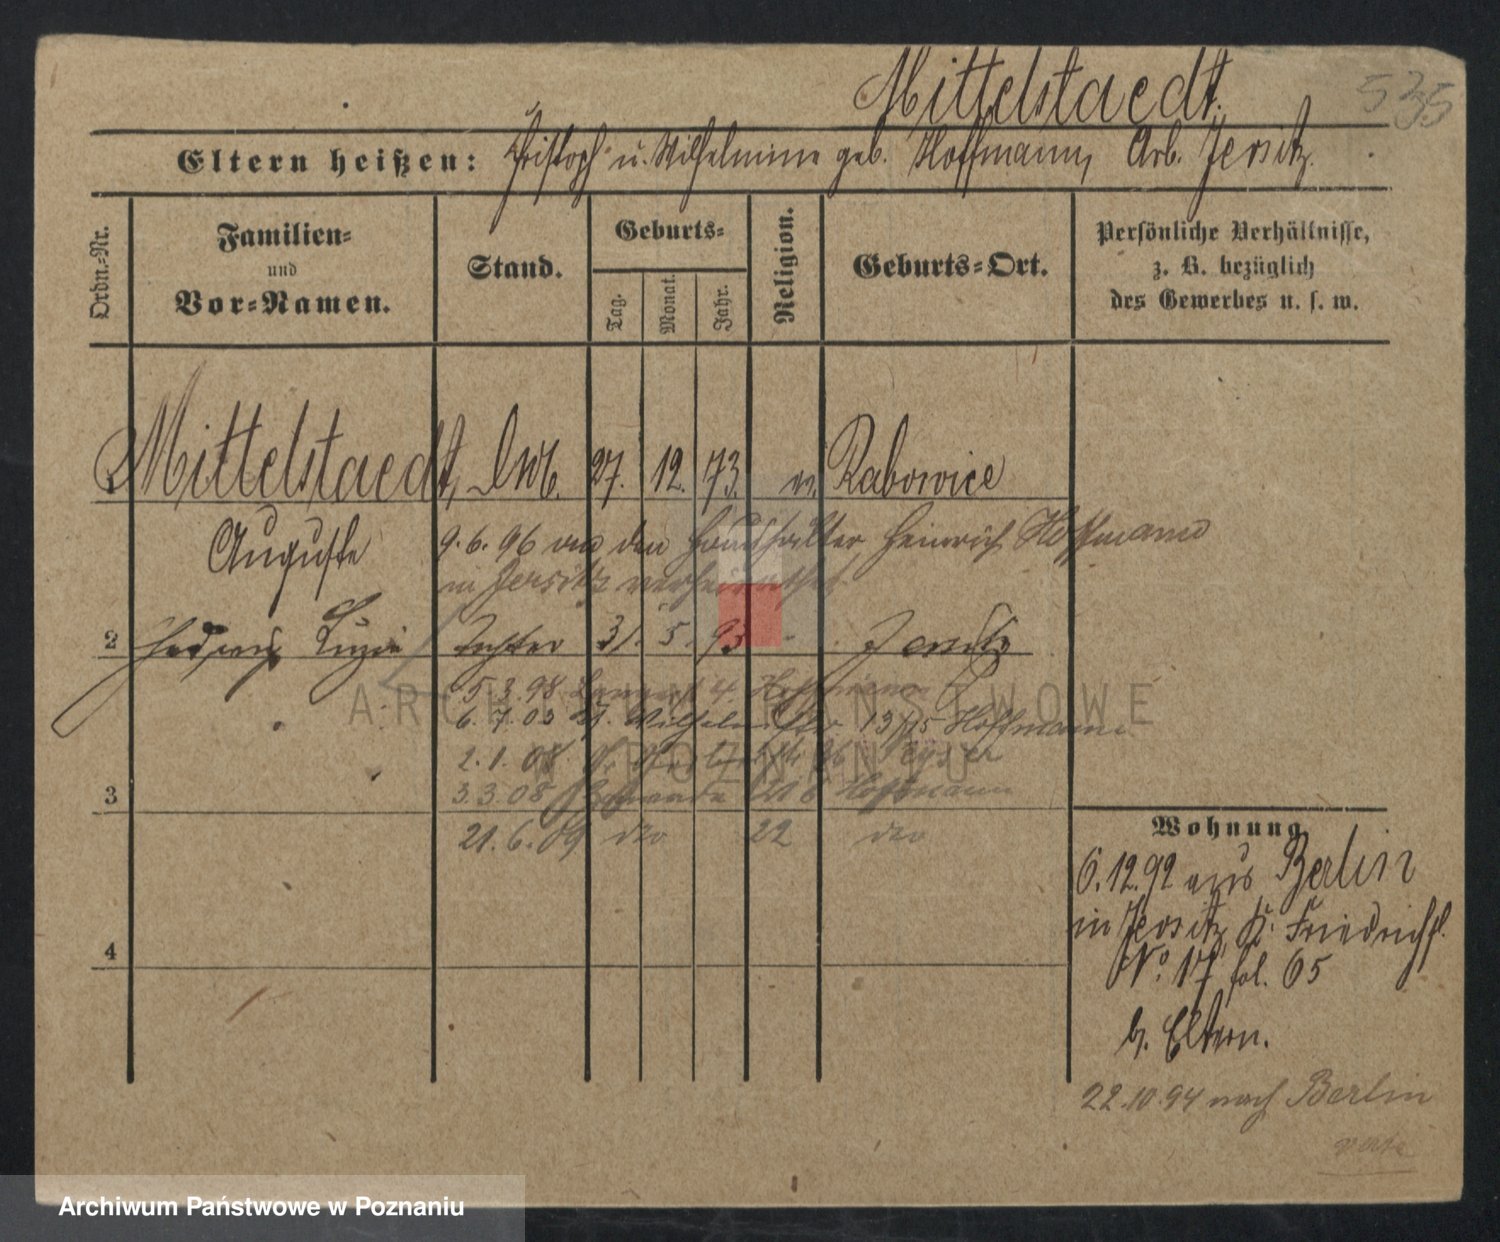 Mittelstaedt. 535
Eltern heißen: Christoph u. Wilhelmine geb. Hoffmann, Arb. Jersitz.
Ordn.-Nr.
Familien-
und
Vor-Namen.
Stand.
Geburts-
Tag.
Monat.
Jahr.
Religion.
Geburts-Ort.
Persönliche Verhältnisse,
z. B. bezüglich
des Gewerbes u. s. w.
1 Mittelstaedt, 27. 12. 73. ev. Rabowice
Auguste
9.6.96 an den Haushälter Heinrich Hoffmann
in Jersitz verheirathet
2 Hedwig Luzie Tochter 31. 5. 93 - Jersitz
5.3.98 Hoffmann
6.7.03 13/15 Hoffmann
2.1.08
3.3.08 Hoffmann
3
21.6.09 dto 22 dto
4
Wohnung
6.12.92 aus Berlin
in Jersitz, K. Friedrichst.
No. 17 fol. 65
b. Eltern.
22.10.94 nach Berlin
verte
ARCHIWUM PAŃSTWOWE
W POZNANIU
Archiwum Państwowe w Poznaniu